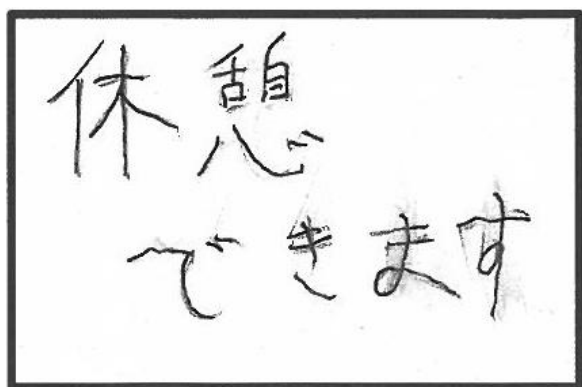 休憩
できます